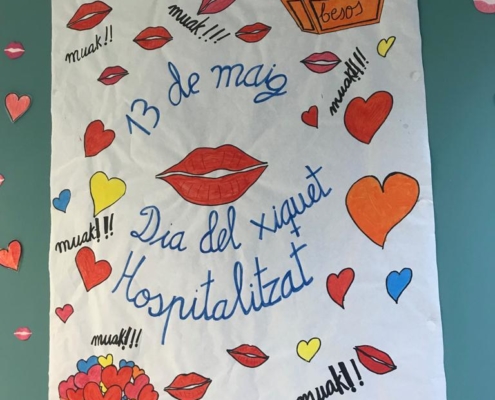 muak!!
muak!!!
besos
muak!!!!
13 de maig
muak!!!
Dia del xiquet
Hospitalitzat
muak!!!
muak!!!